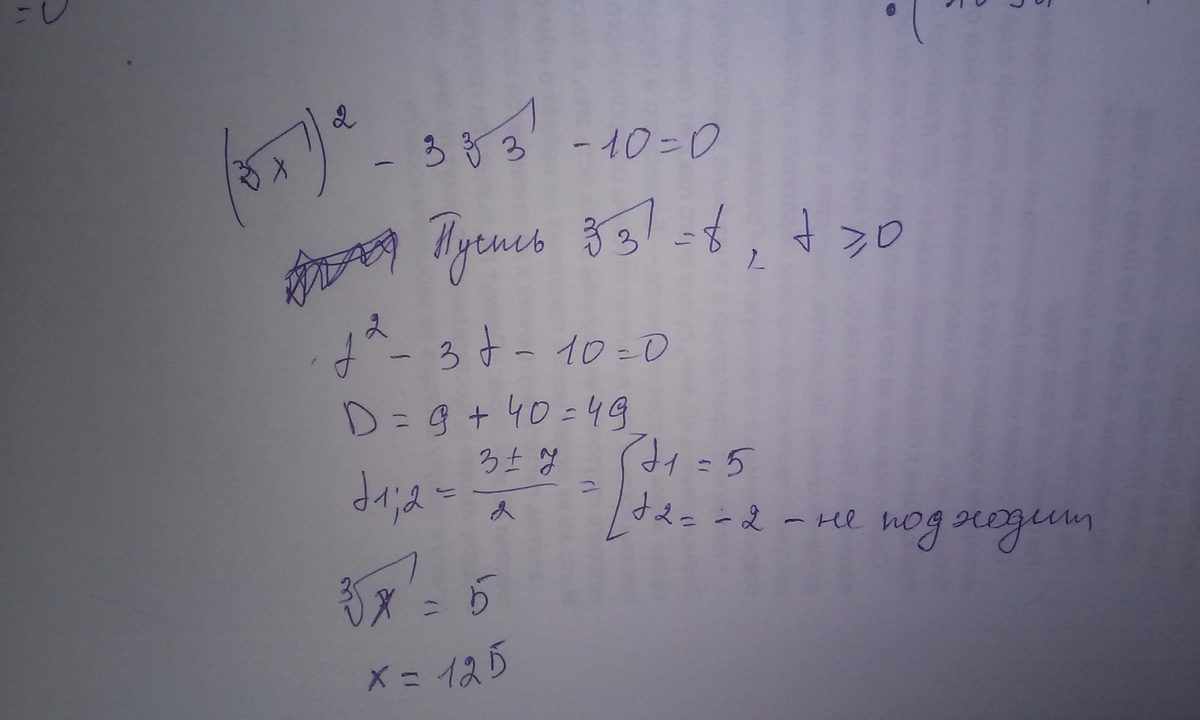 =0
(∛x)² - 3∛3 - 10=0
Пусть ∛3 = t, t ≥0
t² - 3t - 10=0
D = 9 + 40 = 49
t1;2 = (3±7)/2 = [t1 = 5
t2 = -2 - не подходит
∛x = 5
x = 125